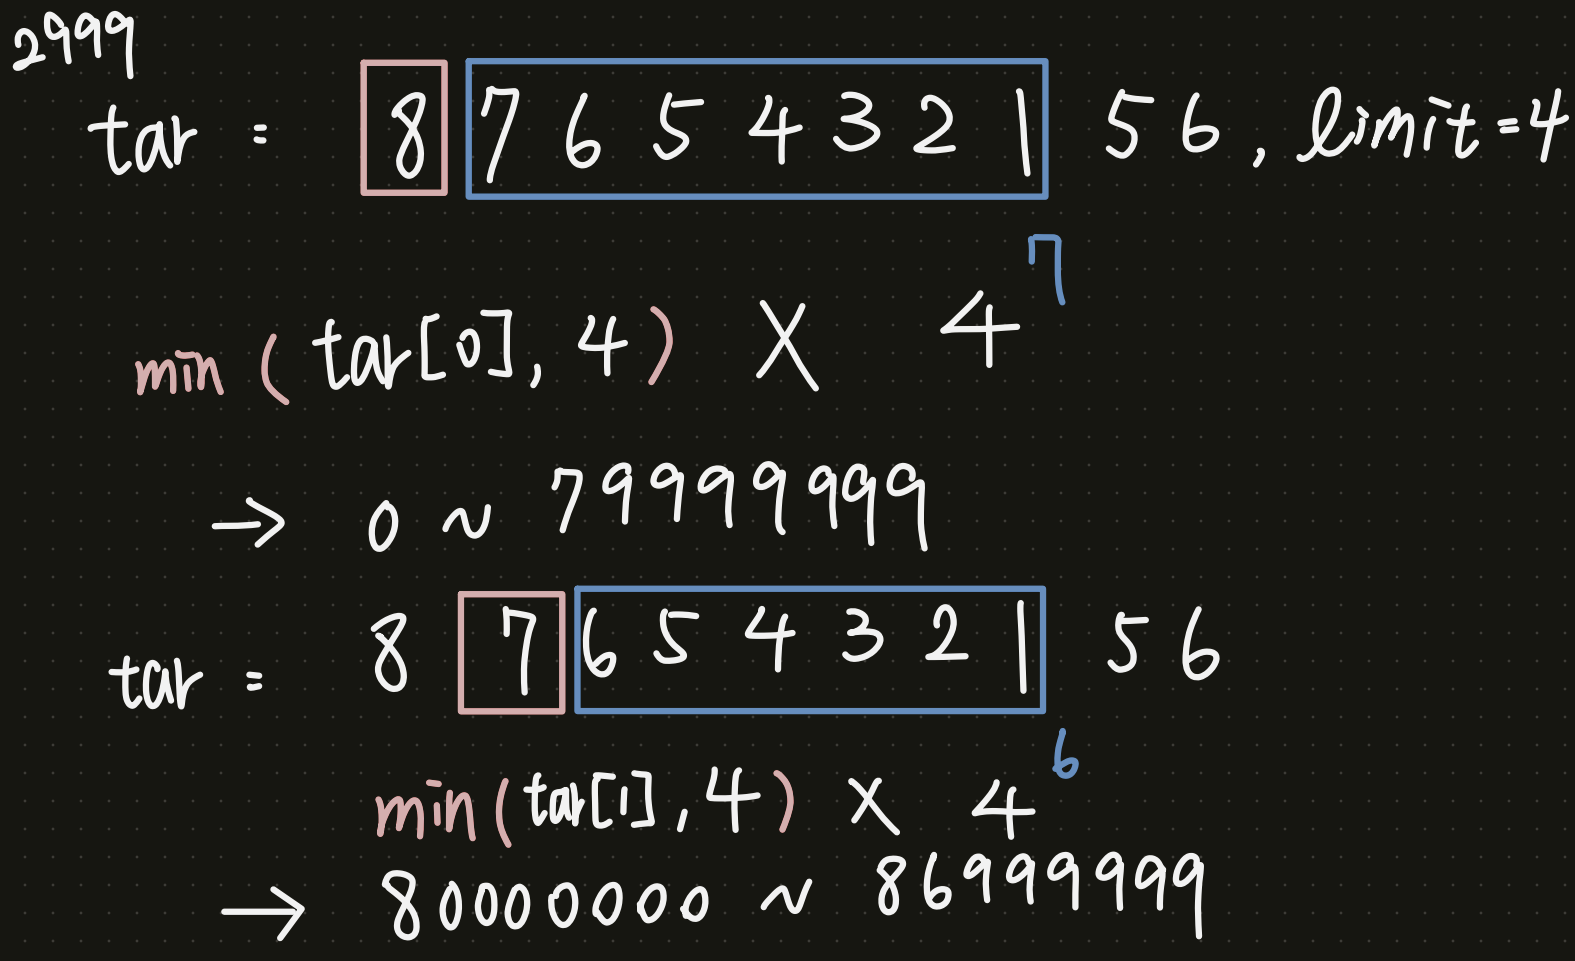 2999
tar = 8 7 6 5 4 3 2 1 5 6 , limit=4
min ( tar[0], 4 ) X 4^7
→ 0 ~ 79999999
tar = 8 7 6 5 4 3 2 1 5 6
min ( tar[1], 4 ) X 4^6
→ 80000000 ~ 86999999